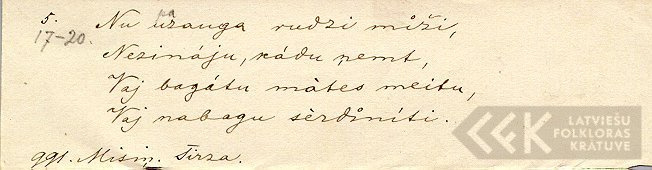 5. Nu uzauga rudzi mîži,
pa
17-20. Nezináju, kádu ņemt,
Vaj bagátu mátes meitu,
Vaj nabagu sèrdîníti.
991. Misiņ. Tirza.
LATVIEŠU
FOLKLORAS
KRĀTUVE